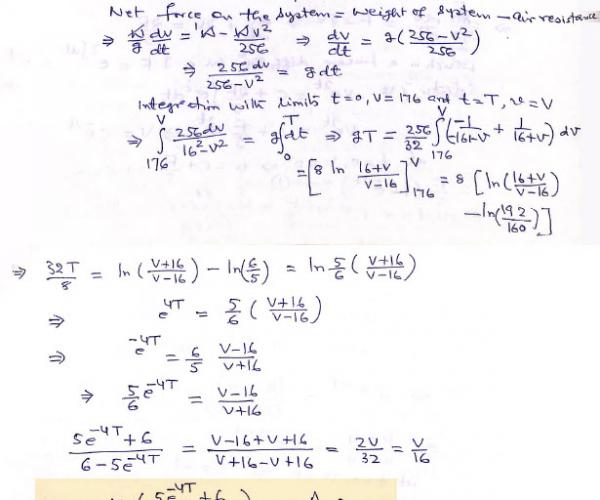 Net force on the System = Weight of System – air resistance
⇒ W/g dv/dt = W - Wv²/256 ⇒ dv/dt = g(256-v²/256)
⇒ 256dv/256-v² = gdt
Integrection with limits t=0, V=176 and t=T, v=V
⇒ ∫₁₇₆^V 256dv/16²-v² = g∫₀^T dt ⇒ gT = 256/32 ∫₁₇₆^V (-1/-16+v + 1/16+v) dv
= [8 ln 16+v/v-16]₁₇₆^V = 8 [ln(16+v/v-16)
-ln(192/160)]
⇒ 32T/8 = ln(V+16/V-16) - ln(6/5) = ln 5/6 (V+16/V-16)
⇒ e^4T = 5/6 (V+16/V-16)
⇒ e^-4T = 6/5 V-16/V+16
⇒ 5/6 e^-4T = V-16/V+16
5e^-4T+6/6-5e^-4T = V-16+V+16/V+16-V+16 = 2V/32 = V/16
(5e^-4T+6)